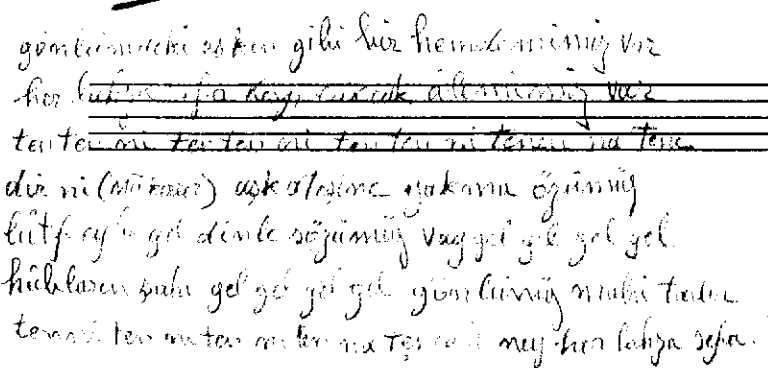 gönlümdeki aşkın gibi bir hemdemimiz var
her lahza sefa alemimiz var
ten ten ni ten ten ni ten ten ni tenen na tene
dir ni aşk ateşine yakma özümüz
lûtf eyle gel dinle sözümüz vay gel gel gel gel
hûbların şahı gel gel gel gel gönlümüz mahı
ten ni ten ni ten ni ten na ney her lahza sefa.